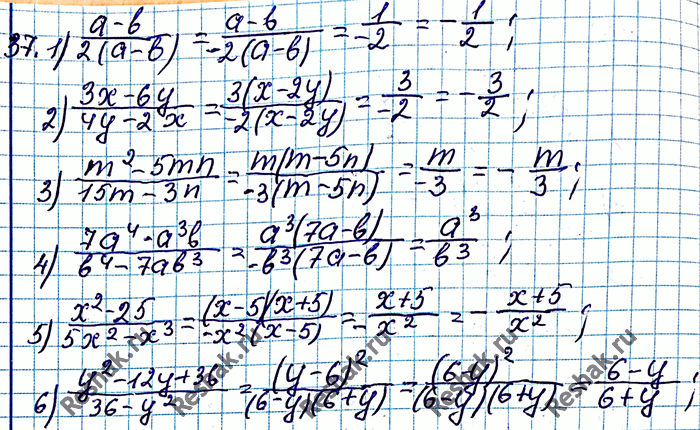 37. 1) (a-b)/(2(a-b)) = (a-b)/(-2(a-b)) = 1/(-2) = -1/2 ;
2) (3x-6y)/(4y-2x) = (3(x-2y))/(-2(x-2y)) = 3/(-2) = -3/2 ;
3) (m²-5mn)/(15m-3n) = (m(m-5n))/(-3(m-5n)) = m/(-3) = -m/3 ;
4) (7a⁴-a³b)/(b⁴-7ab³) = (a³(7a-b))/(-b³(7a-b)) = a³/b³ ;
5) (x²-25)/(5x²-x³) = ((x-5)(x+5))/(-x²(x-5)) = -(x+5)/x² = -(x+5)/x² ;
6) (y²-12y+36)/(36-y²) = (y-6)²/((6-y)(6+y)) = (6-y)²/((6-y)(6+y)) = (6-y)/(6+y) ;
Reshak.ru
Reshak.ru
Reshak.ru
Reshak.ru
Reshak.ru